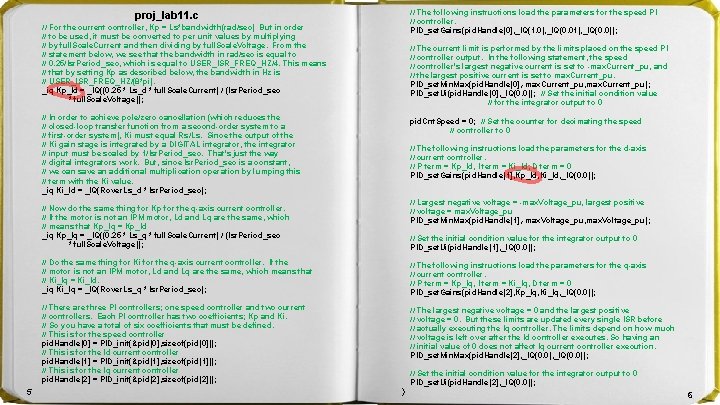 proj_lab11. c
// For the current controller, Kp = Ls*bandwidth(rad/sec) But in order
// to be used, it must be converted to per unit values by multiplying
// by full. Scale. Current and then dividing by full. Scale. Voltage. From the
// statement below, we see that the bandwidth in rad/sec is equal to
// 0. 25/Isr. Period_sec, which is equal to USER_ISR_FREQ_HZ/4. This means
// that by setting Kp as described below, the bandwidth in Hz is
// USER_ISR_FREQ_HZ/(8*pi).
_iq Kp_Id = _IQ((0. 25 * Ls_d * full. Scale. Current) / (Isr. Period_sec
* full. Scale. Voltage));
// In order to achieve pole/zero cancellation (which reduces the
// closed-loop transfer function from a second-order system to a
// first-order system), Ki must equal Rs/Ls. Since the output of the
// Ki gain stage is integrated by a DIGITAL integrator, the integrator
// input must be scaled by 1/Isr. Period_sec. That's just the way
// digital integrators work. But, since Isr. Period_sec is a constant,
// we can save an additional multiplication operation by lumping this
// term with the Ki value.
_iq Ki_Id = _IQ(Rover. Ls_d * Isr. Period_sec);
// Now do the same thing for Kp for the q-axis current controller.
// If the motor is not an IPM motor, Ld and Lq are the same, which
// means that Kp_Iq = Kp_Id
_iq Kp_Iq = _IQ((0. 25 * Ls_q * full. Scale. Current) / (Isr. Period_sec
* full. Scale. Voltage));
// Do the same thing for Ki for the q-axis current controller. If the
// motor is not an IPM motor, Ld and Lq are the same, which means that
// Ki_Iq = Ki_Id
_iq Ki_Iq = _IQ(Rover. Ls_q * Isr. Period_sec);
// There are three PI controllers; one speed controller and two current
// controllers. Each PI controller has two coefficients; Kp and Ki.
// So you have a total of six coefficients that must be defined.
// This is for the speed controller
pid. Handle[0] = PID_init(&pid[0], sizeof(pid[0]));
// This is for the Id current controller
pid. Handle[1] = PID_init(&pid[1], sizeof(pid[1]));
// This is for the Iq current controller
pid. Handle[2] = PID_init(&pid[2], sizeof(pid[2]));
5
// The following instructions load the parameters for the speed PI
// controller.
PID_set. Gains(pid. Handle[0], _IQ(1. 0), _IQ(0. 01), _IQ(0. 0));
// The current limit is performed by the limits placed on the speed PI
// controller output. In the following statement, the speed
// controller's largest negative current is set to -max. Current_pu, and
// the largest positive current is set to max. Current_pu.
PID_set. Min. Max(pid. Handle[0], -max. Current_pu, max. Current_pu);
PID_set. Ui(pid. Handle[0], _IQ(0. 0)); // Set the initial condition value
// for the integrator output to 0
pid. Cnt. Speed = 0; // Set the counter for decimating the speed
// controller to 0
// The following instructions load the parameters for the d-axis
// current controller.
// P term = Kp_Id, I term = Ki_Id, D term = 0
PID_set. Gains(pid. Handle[1], Kp_Id, Ki_Id, _IQ(0. 0));
// Largest negative voltage = -max. Voltage_pu, largest positive
// voltage = max. Voltage_pu
PID_set. Min. Max(pid. Handle[1], -max. Voltage_pu, max. Voltage_pu);
// Set the initial condition value for the integrator output to 0
PID_set. Ui(pid. Handle[1], _IQ(0. 0));
// The following instructions load the parameters for the q-axis
// current controller.
// P term = Kp_Iq, I term = Ki_Iq, D term = 0
PID_set. Gains(pid. Handle[2], Kp_Iq, Ki_Iq, _IQ(0. 0));
// The largest negative voltage = 0 and the largest positive
// voltage = 0. But these limits are updated every single ISR before
// actually executing the Iq controller. The limits depend on how much
// voltage is left over after the Id controller executes. So having an
// initial value of 0 does not affect Iq current controller execution.
PID_set. Min. Max(pid. Handle[2], _IQ(0. 0), _IQ(0. 0));
// Set the initial condition value for the integrator output to 0
PID_set. Ui(pid. Handle[2], _IQ(0. 0));
}
6